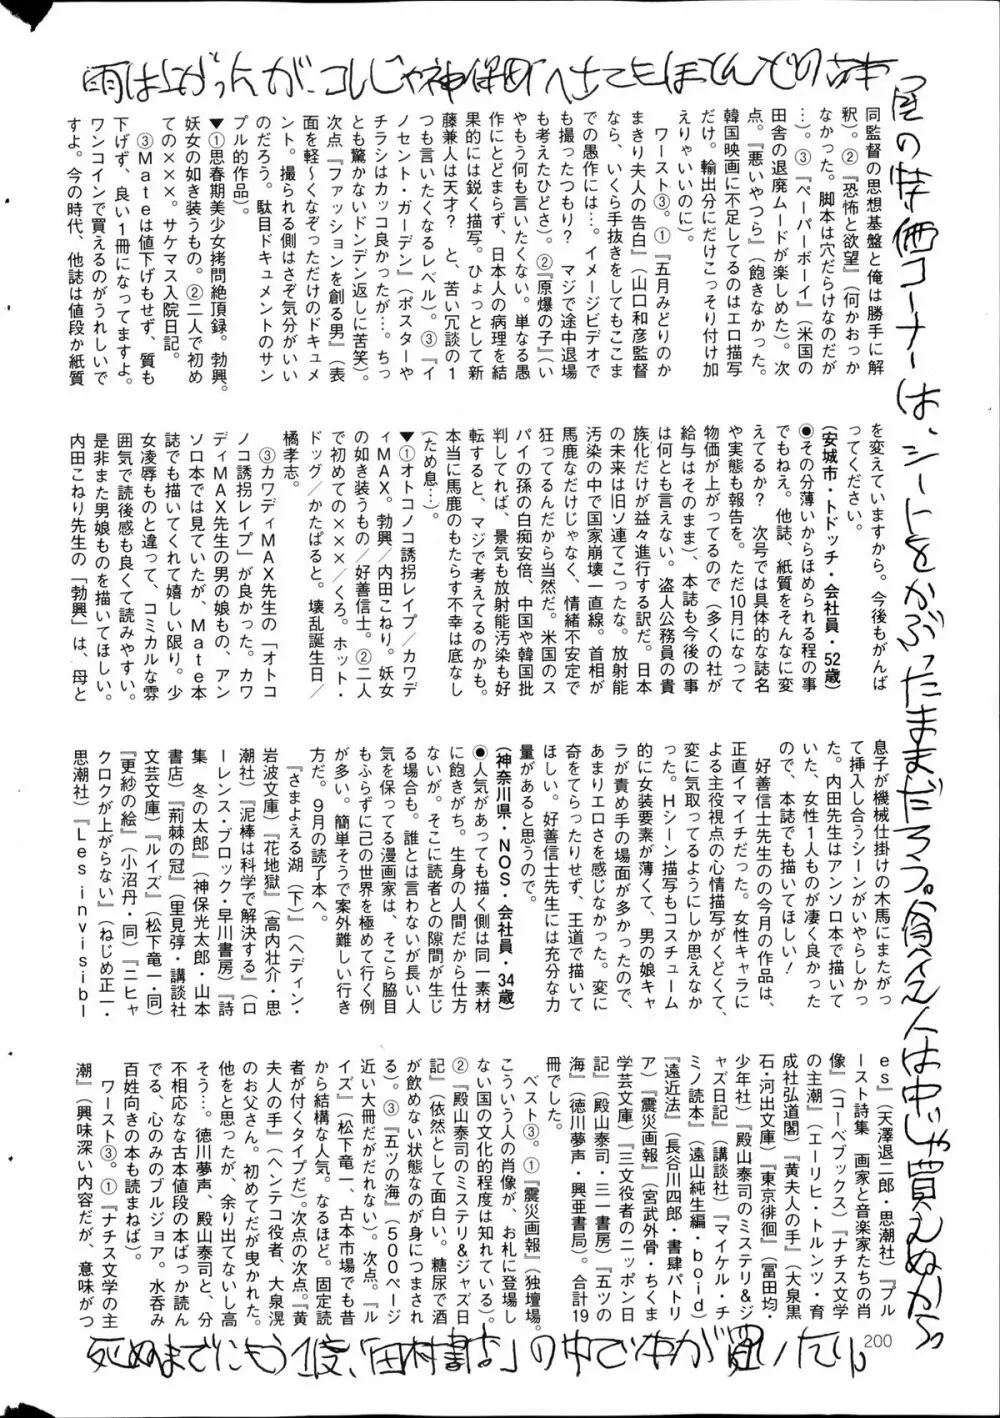 雨は上がったが、コレじゃ神保町へ出てもほとんどの古本
屋の特価コーナーは、シートをかぶったままだろう。貧乏人は中じゃ買えぬから。
同監督の思想基盤と俺は勝手に解
釈)。②『恐怖と欲望』(何かおっか
なかった。脚本は穴だらけなのだが
…)。③『ペーパーボーイ』(米国の
田舎の退廃ムードが楽しめた)。次
点。『悪いやつら』(飽きなかった。
韓国映画に不足してるのはエロ描写
だけ。輸出分にだけこっそり付け加
えりゃいいのに)。
ワースト③。①『五月みどりのか
まきり夫人の告白』(山口和彦監督
なら、いくら手抜きをしてもここま
での愚作には…。イメージビデオで
も撮ったつもり? マジで途中退場
も考えたひどさ)。②『原爆の子』(い
やもう何も言いたくない。単なる愚
作にとどまらず、日本人の病理を結
果的には鋭く描写。ひょっとして新
藤兼人は天才? と、苦い冗談の1
つも言いたくなるレベル)。③『イ
ノセント・ガーデン』(ポスターや
チラシはカッコ良かったが…。ちっ
とも驚かないドンデン返しに苦笑)。
次点『ファッションを創る男』(表
面を軽〜くなぞっただけのドキュメ
ント。撮られる側はさぞ気分がいい
のだろう。駄目ドキュメントのサン
プル的作品)。
▼①思春期美少女拷問絶頂録。勃興。
妖女の如き装うもの。②二人で初め
ての×××。サケマス入院日記。
③Mateは値下げもせず、質も
下げず、良い1冊になってますよ。
ワンコインで買えるのがうれしいで
すよ。今の時代、他誌は値段か紙質
を変えていますから。今後もがんば
ってください。
(安城市・トドッチ・会社員・52歳)
◉その分薄いからほめられる程の事
でもねえ。他誌、紙質をそんなに変
えてるか? 次号では具体的な誌名
や実態も報告を。ただ10月になって
物価が上がってるので(多くの社が
給与はそのまま)、本誌も今後の事
は何とも言えない。盗人公務員の貴
族化だけが益々進行する訳だ。日本
の未来は旧ソ連てこったな。放射能
汚染の中で国家崩壊一直線。首相が
馬鹿なだけじゃなく、情緒不安定で
狂ってるんだから当然だ。米国のス
パイの孫の白痴安倍、中国や韓国批
判してれば、景気も放射能汚染も好
転すると、マジで考えてるのかも。
本当に馬鹿のもたらす不幸は底なし
(ため息…)。
▼①オトコノコ誘拐レイプ/カワデ
ィMAX。勃興/内田こねり。妖女
の如き装うもの/好善信士。②二人
で初めての×××/くろ。ホット・
ドッグ/かたばると。壊乱誕生日/
橘孝志。
③カワディMAX先生の「オトコ
ノコ誘拐レイプ」が良かった。カワ
ディMAX先生の男の娘もの、アン
ソロ本では見ていたが、Mate本
誌でも描いてくれて嬉しい限り。少
女凌辱ものと違って、コミカルな雰
囲気で読後感も良くて読みやすい。
是非また男娘ものを描いてほしい。
内田こねり先生の「勃興」は、母と
息子が機械仕掛けの木馬にまたがっ
て挿入し合うシーンがいやらしかっ
た。内田先生はアンソロ本で描いて
いた、女性1人ものが凄く良かった
ので、本誌でも描いてほしい!
好善信士先生のの今月の作品は、
正直イマイチだった。女性キャラに
よる主役視点の心情描写がくどくて、
変に気取ってるようにしか思えなか
った。Hシーン描写もコスチューム
的に女装要素が薄くて、男の娘キャ
ラが責め手の場面が多かったので、
あまりエロさを感じなかった。変に
奇をてらったりせず、王道で描いて
ほしい。好善信士先生には充分な力
量があると思うので。
(神奈川県・NOS・会社員・34歳)
◉人気があっても描く側は同一素材
に飽きがち。生身の人間だから仕方
ないが。そこに読者との隙間が生じ
る場合も。誰とは言わないが長い人
気を保ってる漫画家は、そこら脇目
もふらずに己の世界を極めて行く例
が多い。簡単そうで案外難しい行き
方だ。9月の読了本へ。
『さまよえる湖(下)』(ヘディン・
岩波文庫)『花地獄』(高内壮介・思
潮社)『泥棒は科学で解決する』(ロ
ーレンス・ブロック・早川書房)『詩
集 冬の太郎』(神保光太郎・山本
書店)『荊棘の冠』(里見弴・講談社
文芸文庫)『ルイズ』(松下竜一・同)
『更紗の絵』(小沼丹・同)『二ヒャ
クロクが上がらない』(ねじめ正一・
思潮社)『Les invisibl
es』(天澤退二郎・思潮社)『プル
ースト詩集 画家と音楽家たちの肖
像』(コーベブックス)『ナチス文学
の主潮』(エーリヒ・トルンツ・育
成社弘道閣)『黄夫人の手』(大泉黒
石・河出文庫)『東京徘徊』(冨田均・
少年社)『殿山泰司のミステリ&ジ
ャズ日記』(講談社)『マイケル・チ
ミノ読本』(遠山純生編・boid)
『遠近法』(長谷川四郎・書肆パトリ
ア)『震災画報』(宮武外骨・ちくま
学芸文庫)『三文役者のニッポン日
記』(殿山泰司・三一書房)『五ツの
海』(徳川夢声・興亜書局)。合計19
冊でした。
ベスト③。①『震災画報』(独壇場。
こういう人の肖像が、お札に登場し
ない国の文化的程度は知れている)。
②『殿山泰司のミステリ&ジャズ日
記』(依然として面白い。糖尿で酒
が飲めない状態なのが身につまされ
る)。③『五ツの海』(500ページ
近い大冊だがだれない)。次点。『ル
イズ』(松下竜一、古本市場でも昔
から結構な人気。なるほど。固定読
者が付くタイプだ)次点の次点。『黄
夫人の手』(ヘンテコ役者、大泉滉
のお父さん。初めてだが曳かれた。
他をと思ったが、余り出てないし高
そう…。徳川夢声、殿山泰司と、分
不相応なな古本値段の本ばっか読ん
でる、心のみのブルジョア。水呑み
百姓向きの本も読まねば)。
ワースト③。①『ナチス文学の主
潮』(興味深い内容だが、意味がつ
200
死ぬまでにもう1度、「田村書店」の中で本が買いたい。